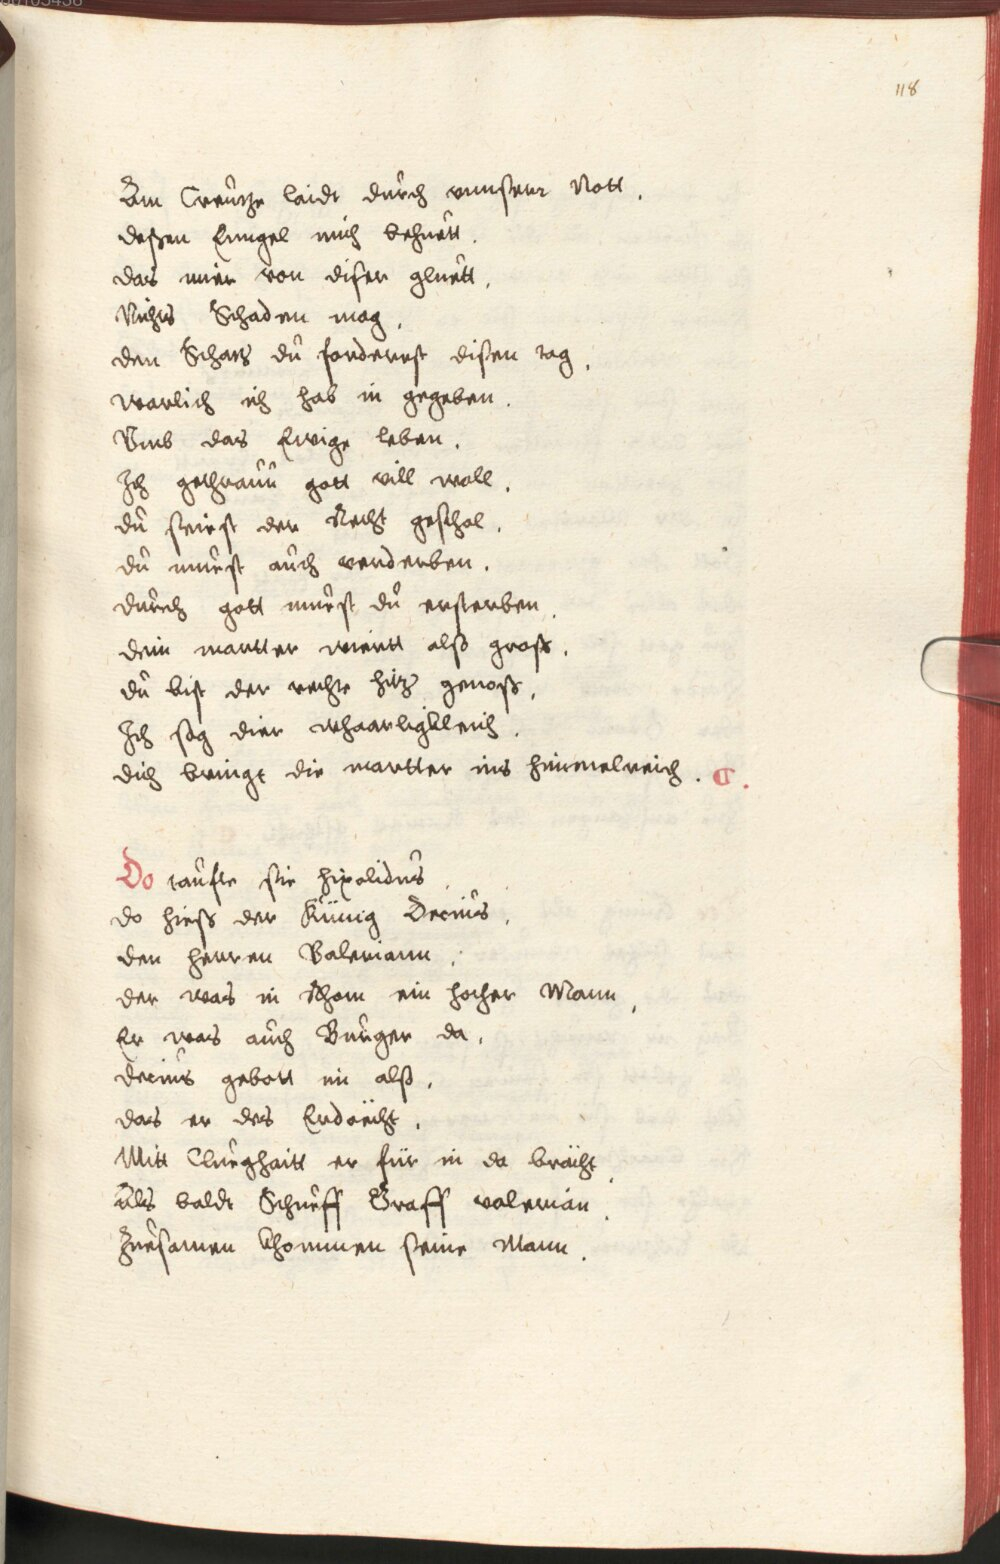 118
Am Creutze laidt durch unnserr Nott.
deßen Enngel mich behuett.
das mier von diser gluett,
Nichts Schaden mag,
den Schatz du forderest disen tag,
warlich ich hab in gegeben.
Umb das Ewige leben.
Ich gethrauu gott vill woll,
du seiest der Recht geschol.
du muest auch verderben,
durch gott muest du ersterben,
dein martter wiertt alß groß,
du bist der rechte hitz genoß,
Ich sag dier whaarligklleich,
dich bringt die martter ins himmelreich. C.
Do taufte sie Hipolidus,
do hieß der Künig Decius,
den herren Valeriann,
der was in Rhom ein hocher Mann,
Er was auch Burger da,
Decius gebott im alß,
das er des Erdächt,
Mitt Cluoghaitt er für in da brächt,
Als baldt Schueff Graff valerian,
Zuesamen khommen seine Mann.